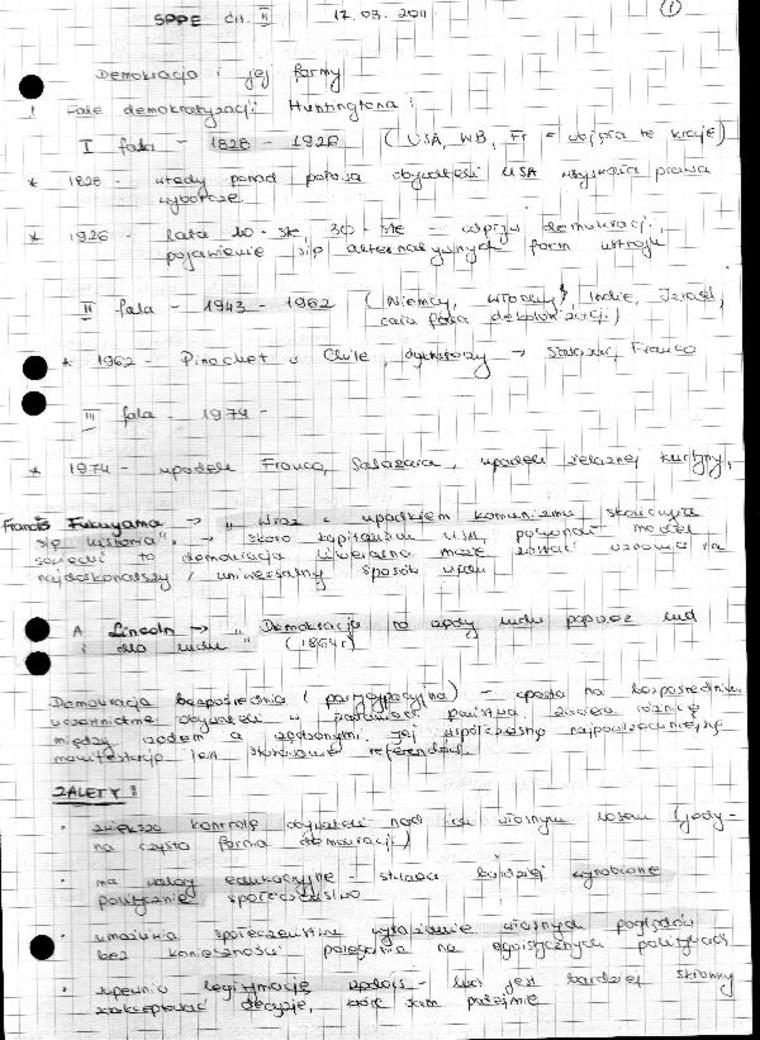 SPPE ćw. II 12.03.2011 1
Demokracja i jej formy
! Fale demokratyzacji Huntingtona:
I fala - 1828 - 1926 (USA, WB, Fr = te kraje)
* 1828 - wtedy ponad połowa obywateli USA uzyskała prawa
wyborcze
* 1926 - lata 20-ste, 30-ste - demokracji,
pojawienie się alternatywnych form ustroju
II fala - 1943 - 1962 (Niemcy, Włochy, Indie, Izrael,
cała fala dekolonizacji)
* 1962 - Pinochet w Chile, dyktatorzy → Salazar, Franco
III fala - 1974 -
* 1974 - upadek Franco, Salazara, upadek żelaznej kurtyny,
Francis Fukuyama → "Wraz z upadkiem komunizmu skończyła
się historia". → skoro kapitalizm USA pokonał model
sowiecki to demokracja liberalna może zostać uznana za
najdoskonalszy i uniwersalny sposób
A. Lincoln → "Demokracja to rządy ludu poprzez lud
i dla ludu" (1864r)
Demokracja bezpośrednia (partycypacyjna) - oparta na bezpośrednim
uczestnictwie obywateli w państwa. Zaciera różnicę
między rządem a rządzonymi. Jej współczesną najpowszechniejszą
manifestacją jest stosowanie referendum.
ZALETY:
• zwiększa kontrolę obywateli nad ich własnym losem (jedy-
na czysta forma demokracji)
• ma walory edukacyjne - stwarza bardziej wyrobione
politycznie społeczeństwo
• umożliwia społeczeństwu wyrażanie własnych poglądów
bez konieczności polegania na egoistycznych politykach
• zapewnia legitymację rządów - lud jest bardziej skłonny
zaakceptować decyzje, które sam podejmie